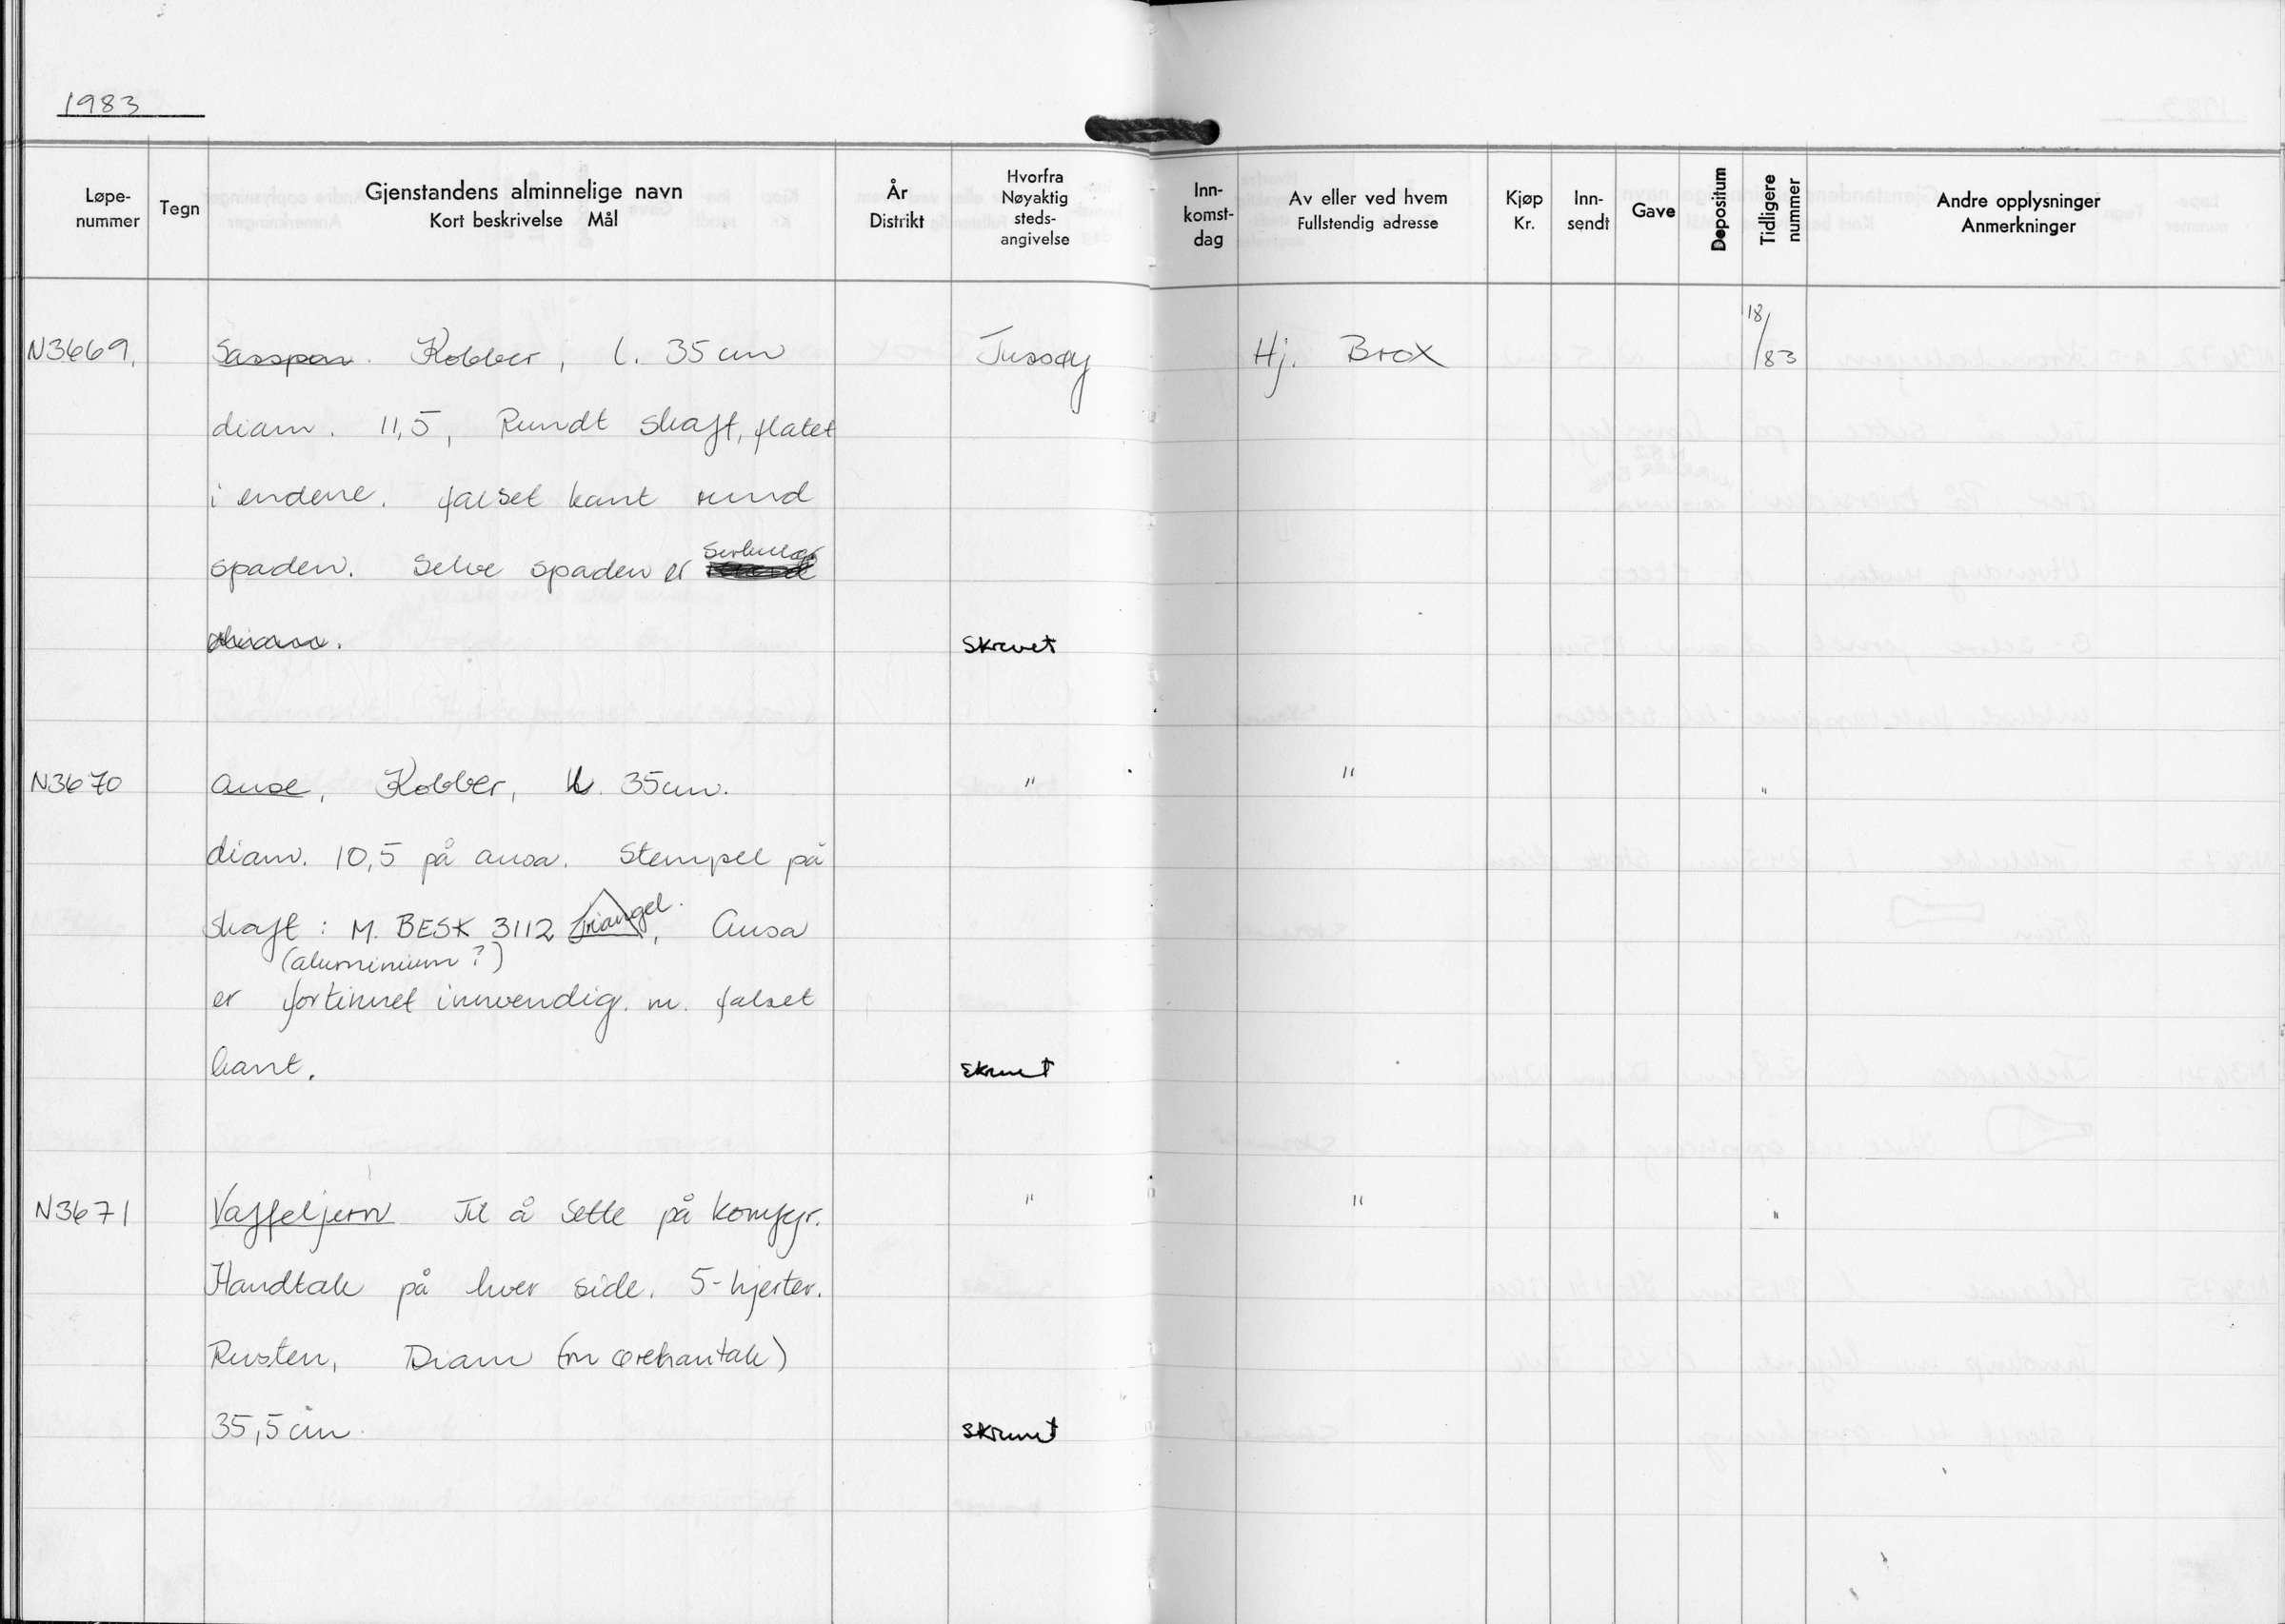 1983
Løpe-nummer Tegn Gjenstandens alminnelige navn Kort beskrivelse Mål År Distrikt Hvorfra Nøyaktig steds-angivelse Inn-komst-dag Av eller ved hvem Fullstendig adresse Kjøp Kr. Inn-sendt Gave Depositum Tidligere nummer Andre opplysninger Anmerkninger
N3669. Kobber, l. 35 cm Tussøy Hj. Brox 18/83
diam. 11,5, Rundt skaft, flatet
i endene. falset kant rund
spaden. Selve spaden er
Skrevet
N3670 Ause, Kobber, 35cm. " " "
diam. 10,5 på ausa. Stempel på
skaft: M. BESK 3112 triangel. Ausa
(aluminium?)
er fortinnet innvendig. m. falset
kant. Skrevet
N3671 Vaffeljern Til å sette på komfyr. " " "
Handtak på hver side. 5-hjerter.
Rusten, Diam (m ørehantak)
35,5 cm Skrevet